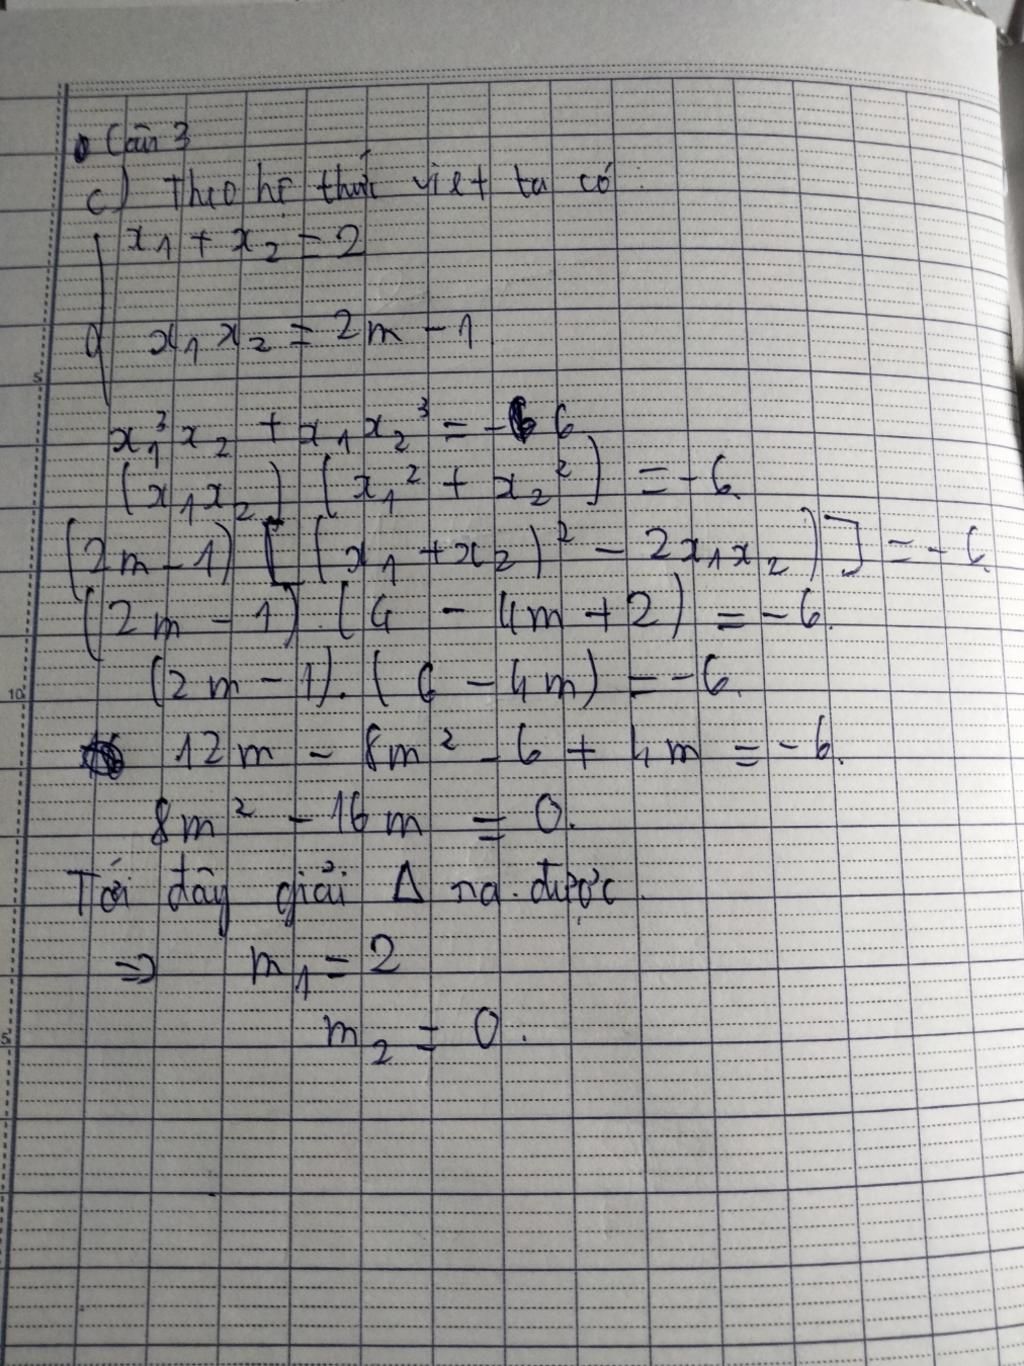 Câu 3
c) Theo hệ thức viet ta có :
x₁ + x₂ = 2
x₁x₂ = 2m - 1
x₁³x₂ + x₁x₂³ = -6
(x₁x₂) (x₁² + x₂²) = -6.
(2m - 1) [(x₁ + x₂)² - 2x₁x₂)] = -6.
(2m - 1).(4 - 4m + 2) = -6.
(2m - 1).(6 - 4m) = -6.
12m - 8m² - 6 + 4m = -6.
8m² - 16m = 0.
Tới đây giải Δ ra được.
⇒ m₁ = 2
m₂ = 0.
5
10
5